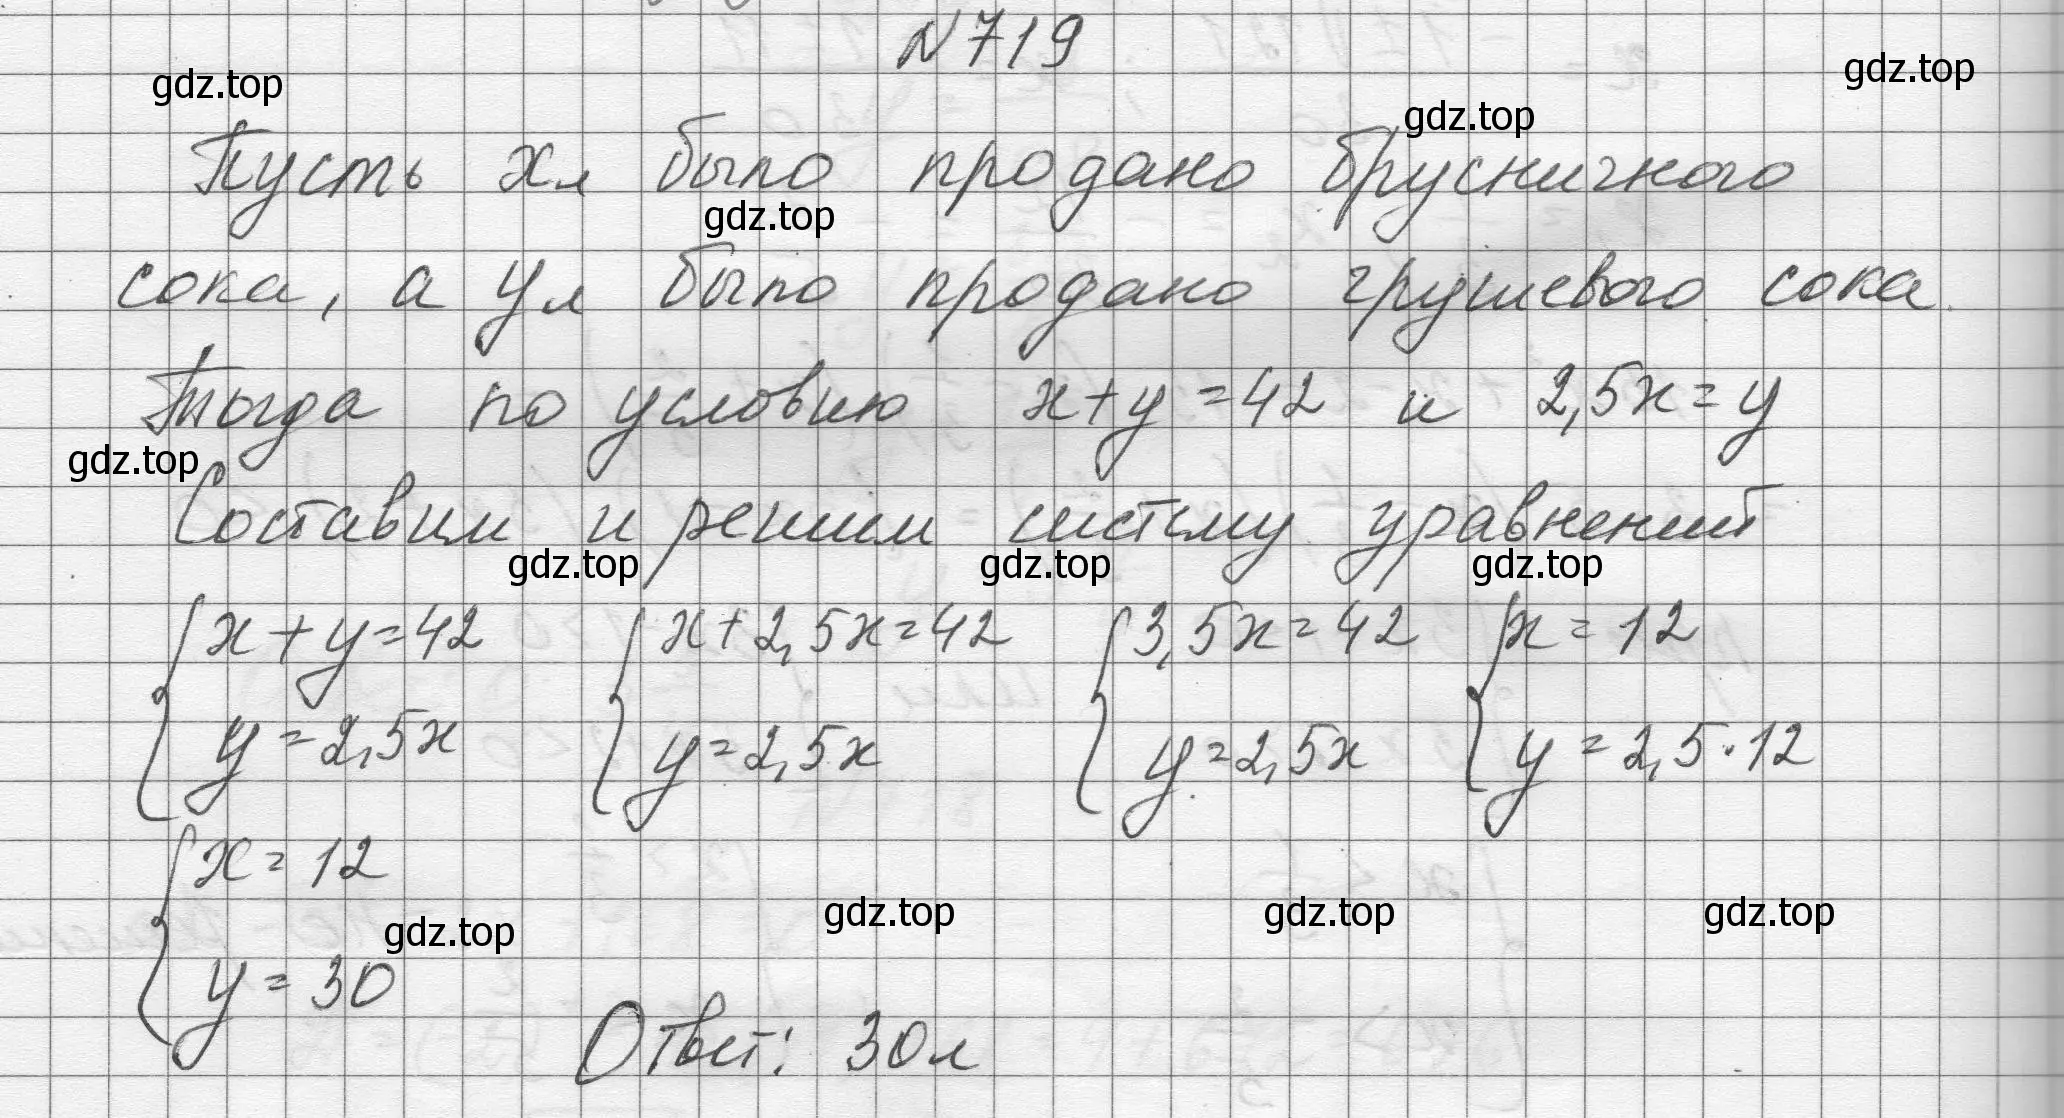 №719
gdz.top
gdz.top
gdz.top
Пусть x л было продано брусничного
gdz.top
сока, а y л было продано грушевого сока.
Тогда по условию x+y=42 и 2,5x=y
gdz.top
Составим и решим систему уравнений
gdz.top gdz.top gdz.top
{x+y=42 {x+2,5x=42 {3,5x=42 {x=12
{y=2,5x {y=2,5x {y=2,5x {y=2,5·12
{x=12
gdz.top gdz.top gdz.top gdz.top
{y=30
Ответ: 30л